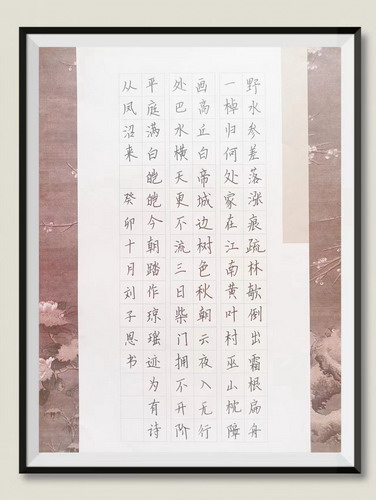 野水参差落涨痕疏林欹倒出霜根扁舟
一棹归何处家在江南黄叶村巫山枕障
画高丘白帝城边树色秋朝云夜入无行
处巴水横天更不流三日柴门拥不开阶
平庭满白皑皑今朝踏作琼瑶迹为有诗
从凤沼来 癸卯十月刘子恩书